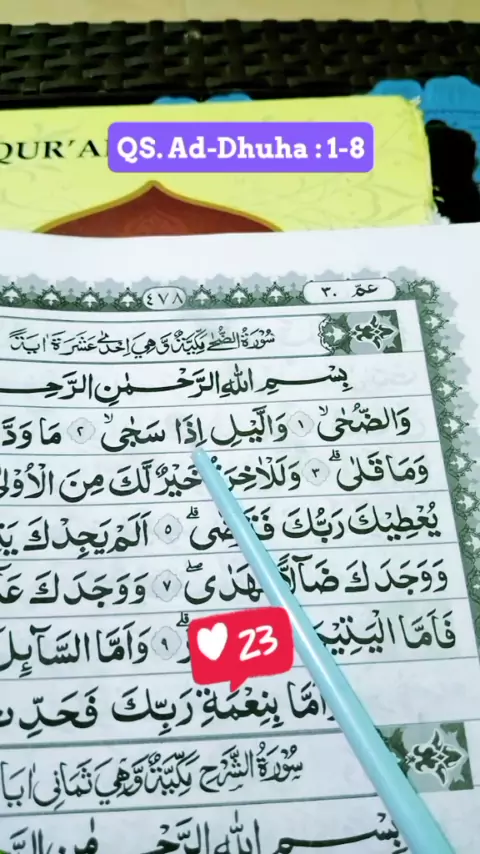 QUR'A
QS. Ad-Dhuha : 1-8
٤٧٨
عمّ ٣٠
سُوْرَةُ الضُّحٰى مَكِّيَّةٌ وَّهِيَ اِحْدٰى عَشْرَةَ اٰيَةً
بِسْمِ اللهِ الرَّحْمٰنِ الرَّحِـ
وَالضُّحٰىۙ ١ وَالَّيْلِ اِذَا سَجٰىۙ ٢ مَا وَدَّ
وَمَا قَلٰىۗ ٣ وَلَلْاٰخِرَةُ خَيْرٌ لَّكَ مِنَ الْاُوْلٰ
يُعْطِيْكَ رَبُّكَ فَتَرْضٰىۗ ٥ اَلَمْ يَجِدْكَ يَتِ
وَوَجَدَكَ ضَاۤلًّا فَهَدٰىۖ ٧ وَوَجَدَكَ عَاۤ
فَاَمَّا الْيَتِيْمَ ٩ وَاَمَّا السَّاۤىِٕلَ
23
وَاَمَّا بِنِعْمَةِ رَبِّكَ فَحَدِّثْ
سُوْرَةُ الشَّرْحِ مَكِّيَّةٌ وَّهِيَ ثَمَانِيْ اٰيَا
بِسْمِ اللهِ الرَّحْمٰنِ الرَّ